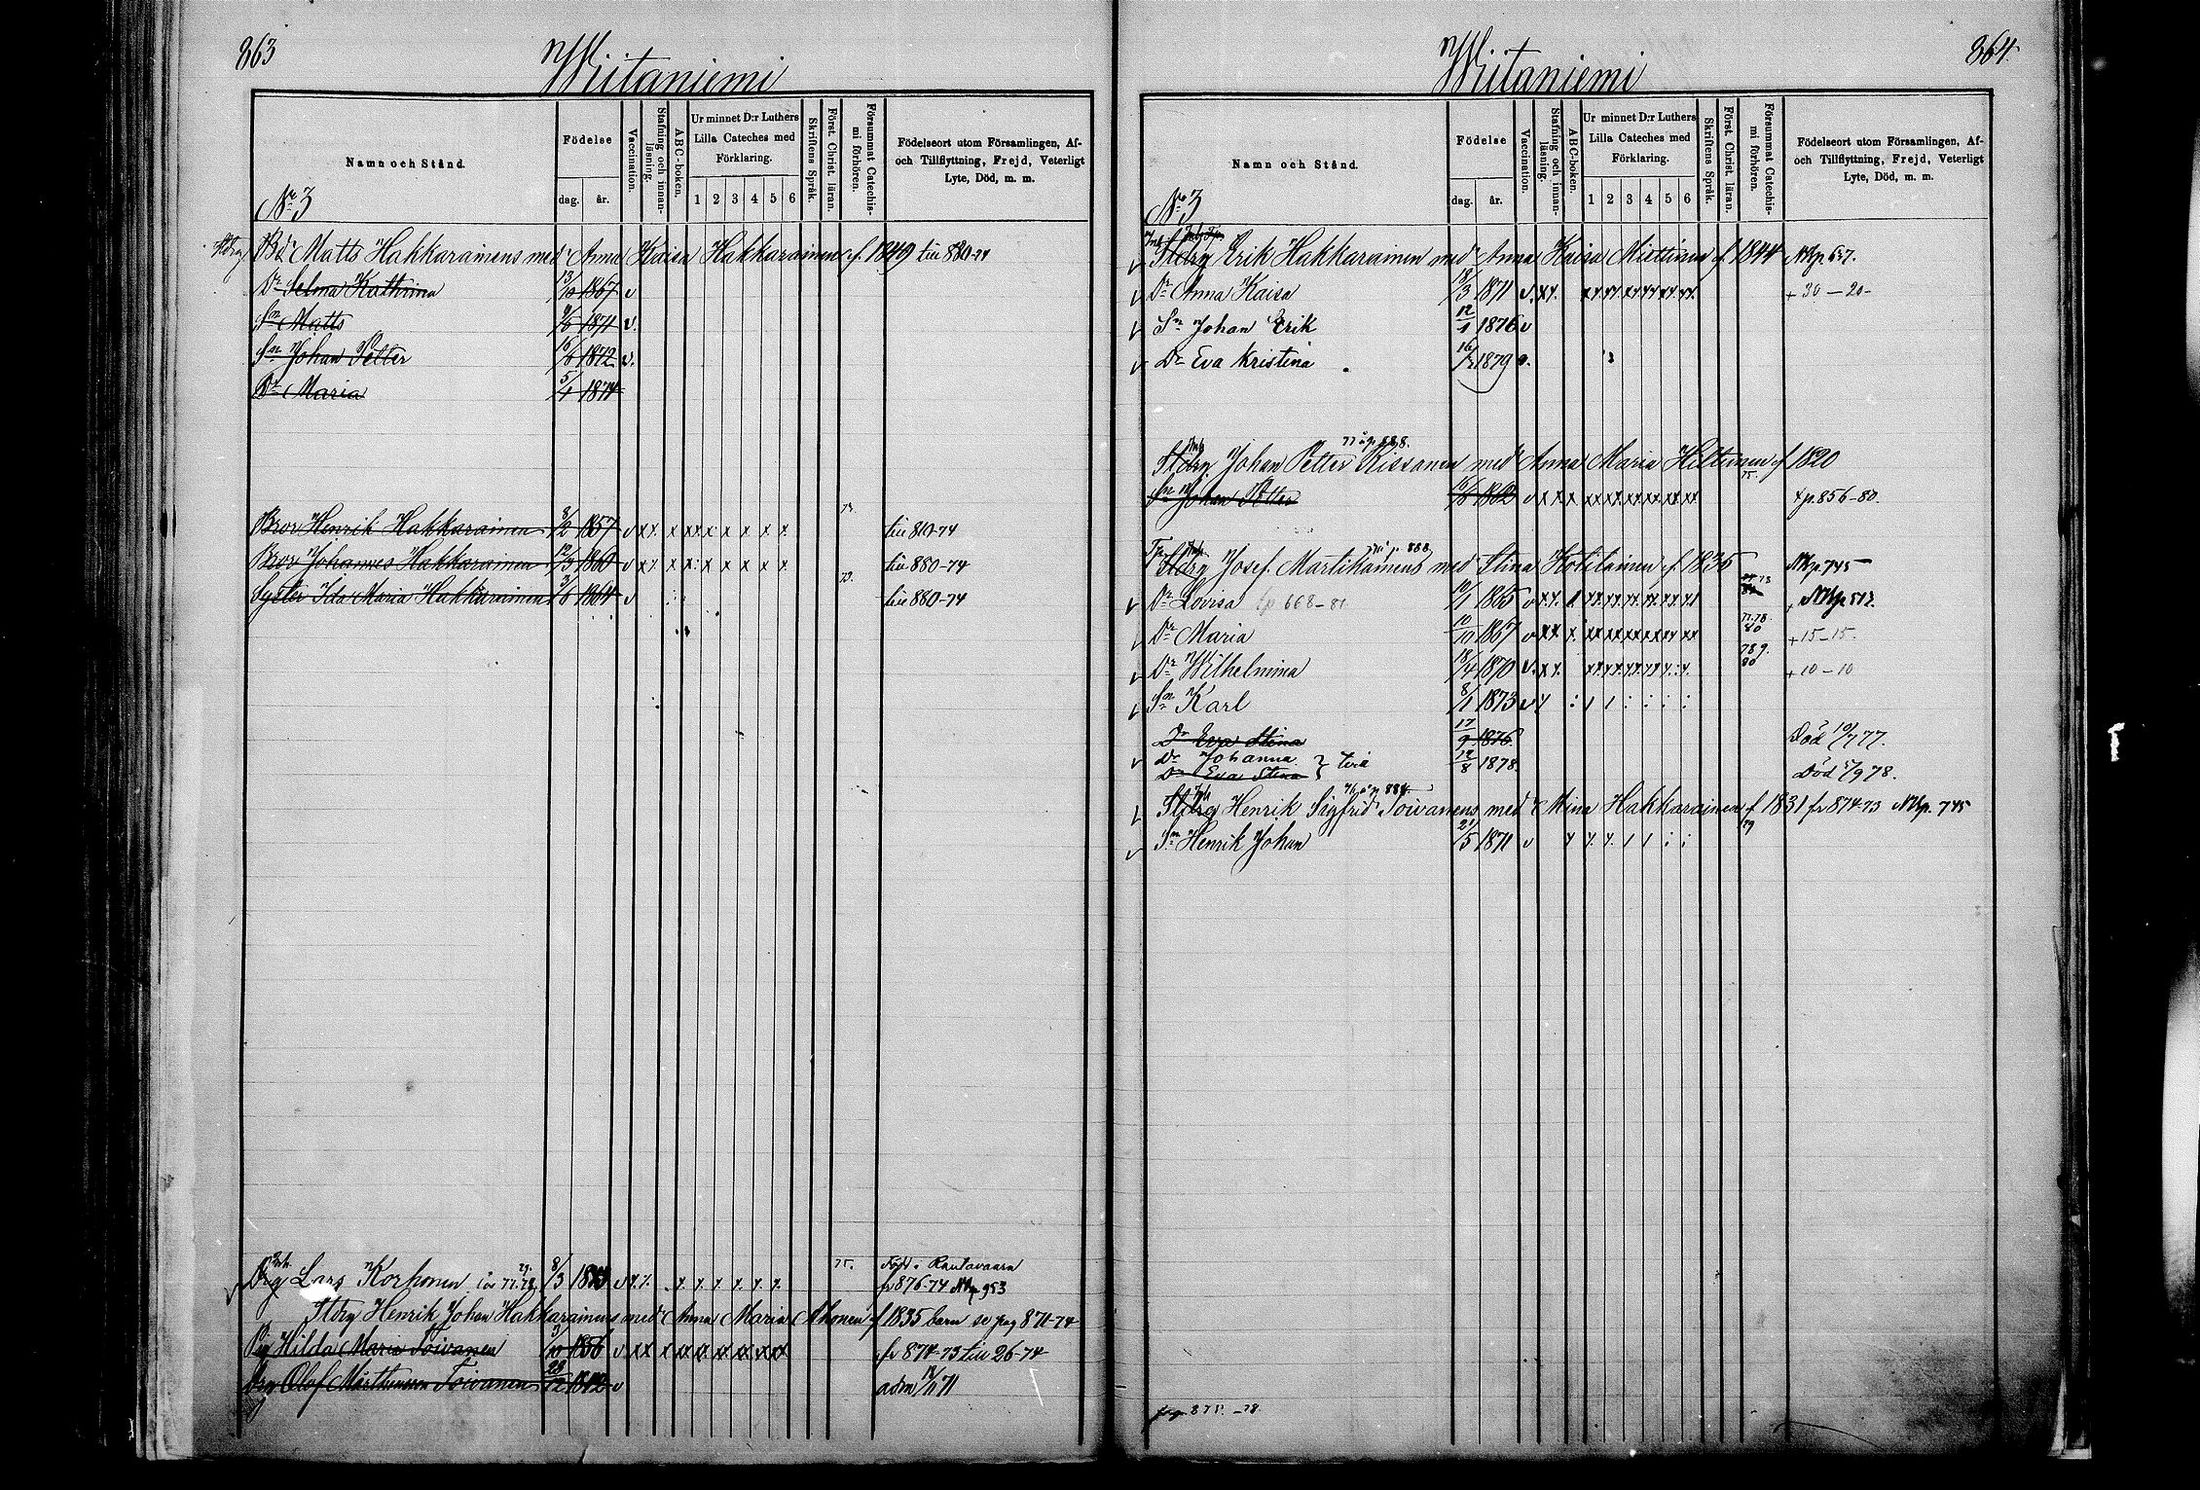 863
Wiitaniemi
Namn och Stånd.
Födelse
dag.
år.
Vaccination.
Stafning och innanläsning.
ABC-boken.
Ur minnet D:r Luthers
Lilla Cateches med
Förklaring.
1 2 3 4 5 6
Skriftens Språk.
Först. Christ. läran.
Försummat Catechismi förhören.
Födelseort utom Församlingen, Af-
och Tillflyttning, Frejd, Veterligt
Lyte, Död, m. m.
No 3
Matts Hakkarainens med Anna Kaisa Hakkarainen f. 1849 till 880-74
Dr Selma Kathrina 13/10 1867 v
Sn Matts 1871 v.
Sn Johan Petter 1872 v.
Dr Maria 5/1 1874
73.
Bror Henrik Hakkarainen 8/2 1857 v x x x xx x x x x x till 810-74
Bror Johannes Hakkarainen 12/5 1860 v x x x x x x x x x till 880-74
Syster Ida Maria Hakkarainen 3/6 1864 v till 880-74
Drg Lars Korhonen 8/3 75. född i Rautavaara
fr 876-74 Nkp 953
Stdrg Henrik Johan Hakkarainens med Anna Maria Ahonen f 1835 barn se pag 871-74
Pig Hilda Maria Toivanen 3/10 1856 v fr 874-73 till 26-74
Drg Olof Mårthensson Toivanen v adm 71
864.
Wiitaniemi
Namn och Stånd.
Födelse
dag.
år.
Vaccination.
Stafning och innanläsning.
ABC-boken.
Ur minnet D:r Luthers
Lilla Cateches med
Förklaring.
1 2 3 4 5 6
Skriftens Språk.
Först. Christ. läran.
Försummat Catechismi förhören.
Födelseort utom Församlingen, Af-
och Tillflyttning, Frejd, Veterligt
Lyte, Död, m. m.
No 3
Stdrg Erik Hakkarainen med Anna Kaisa Miettinen f. 1844 Nkp 657.
Dr Anna Kaisa 1871 + 30 - 20-
Sn Johan Erik 12/1 1876 v
Dr Eva Kristina 1879
Stdrg Johan Petter Rissanen med Anna Maria Hiltunen f 1820
Sn Johan Petter 1862 v 75. tp. 856-80.
Stdrg Josef Martikainens med Stina Kotilainen f. 1835 Nkp 745
Dr Lovisa tp 668-81 10/1 1865 v Nkp 512.
Dr Maria 10/10 1867 v 77.78. 80 + 15-15.
Dr Wilhelmina 18/4 1870 v. 78 9. 80 + 10-10
Sn Karl 8/1 1873 v
Dr Eva Stina 17/9 1876. Död 10/7 77.
Dr Johanna
Dr Eva Stina } tvil 12/8 1878. Död 9 78.
Stdrg Henrik Sigfrid Toivanens med Mina Hakkarainen f 1831 fr 874-73 Nkp. 745
Sn Henrik Johan 21/5 1871 v 79
pag 871. -78